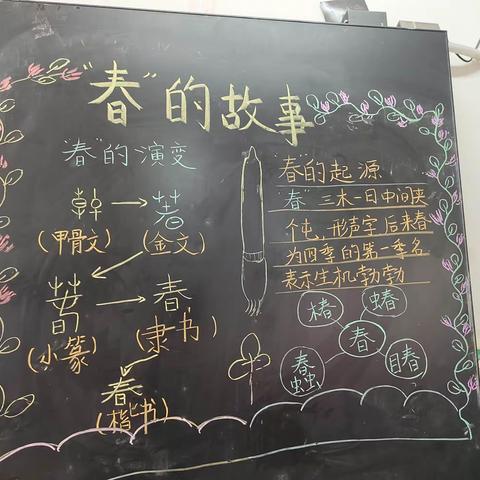 "春"的故事
"春"的演变
(甲骨文) (金文)
春
(小篆) (隶书)
春
(楷书)
"春"的起源
"春"三木一日中间夹
个屯,形声字后来春
为四季的第一季名
表示生机勃勃
椿 蝽
春
蠢 䁐